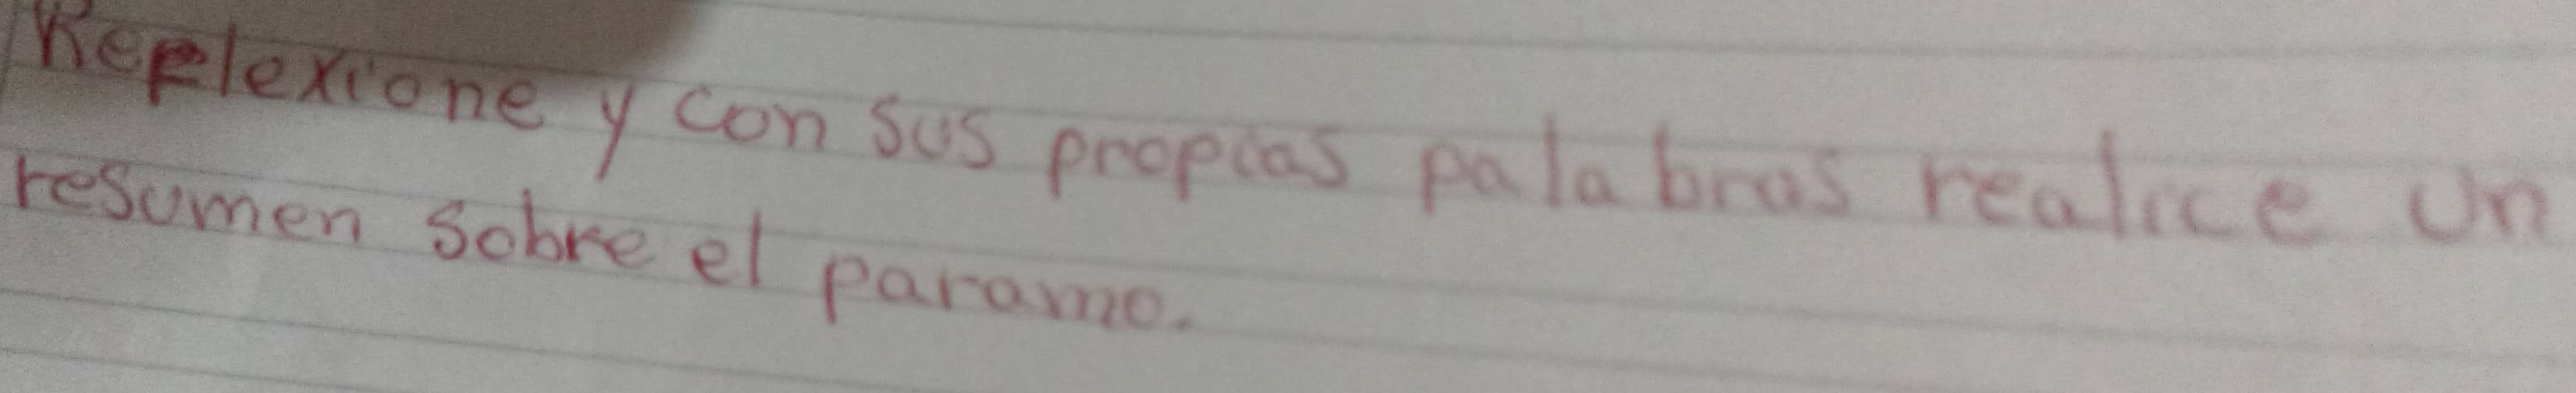 Reflexione y con sus propias palabras realice un
resumen sobre el paramo.